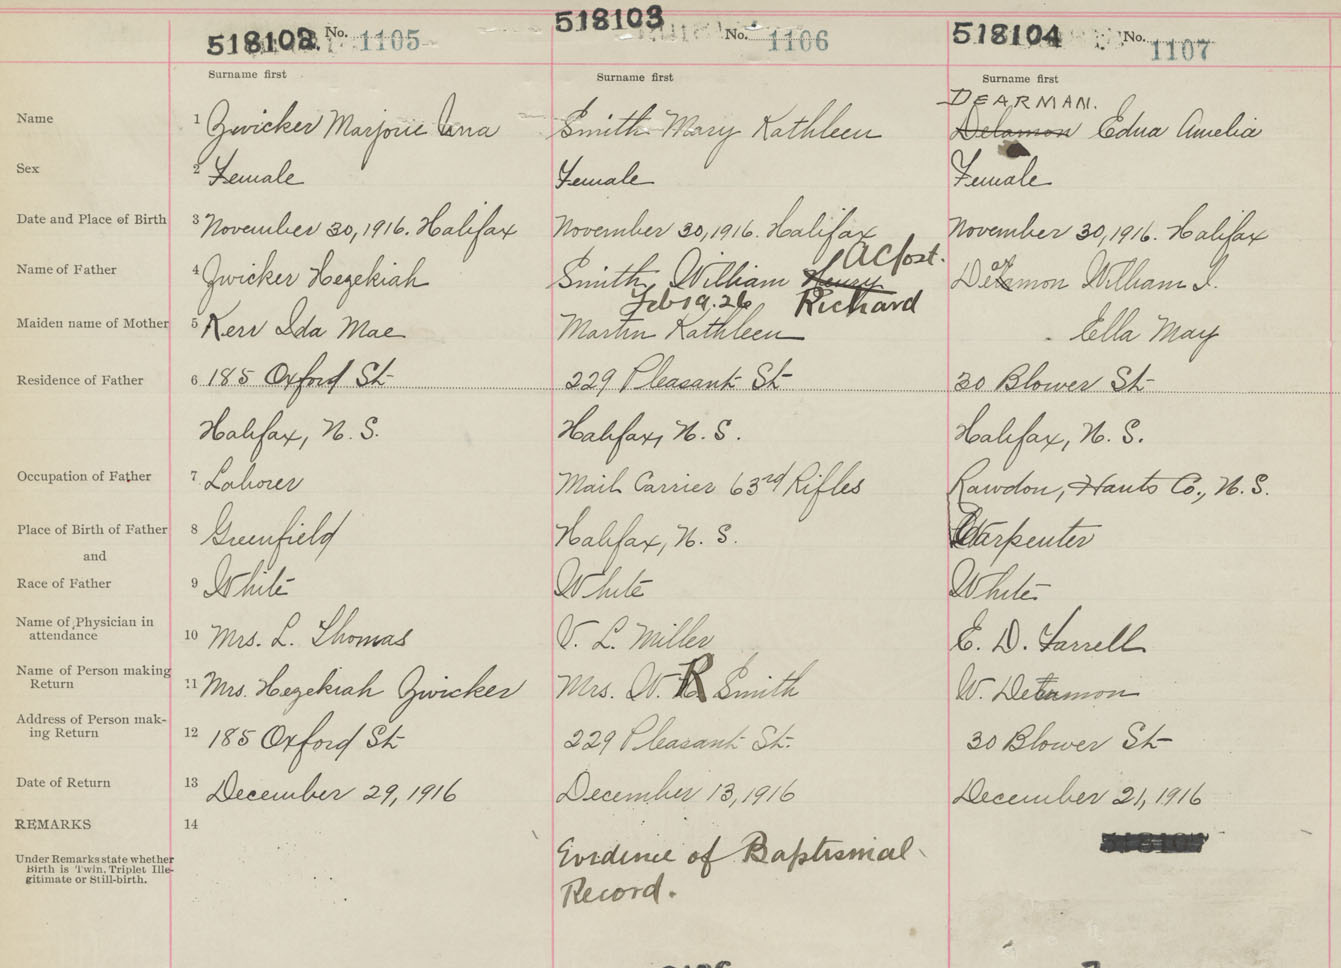 518102 No. 1105 518103 No. 1106 518104 No. 1107
Surname first Surname first Surname first
DEARMAN.
Name 1 Zwicker Marjorie Una Smith Mary Kathleen Delamon Edna Amelia
Sex 2 Female Female Female
Date and Place of Birth 3 November 30, 1916. Halifax November 30, 1916. Halifax November 30, 1916. Halifax
Name of Father 4 Zwicker Hezekiah Smith, William Henry William I.
Feb 19.26 Richard
Maiden name of Mother 5 Kerr Ida Mae Martin Kathleen Ella May
Residence of Father 6 185 Oxford St 229 Pleasant St 30 Blower St
Halifax, N. S. Halifax, N. S. Halifax, N. S.
Occupation of Father 7 Laborer Mail Carrier 63rd Rifles Rawdon, Hants Co., N. S.
Place of Birth of Father 8 Greenfield Halifax, N. S. Carpenter
and
Race of Father 9 White White White
Name of Physician in
attendance 10 Mrs. L. Thomas V. L. Miller E. D. Farrell
Name of Person making
Return 11 Mrs. Hezekiah Zwicker Mrs. W. R Smith W.
Address of Person mak-
ing Return 12 185 Oxford St 229 Pleasant St. 30 Blower St
Date of Return 13 December 29, 1916 December 13, 1916 December 21, 1916
REMARKS 14
Under Remarks state whether
Birth is Twin, Triplet Ille-
gitimate or Still-birth.
Evidence of Baptismal
Record.